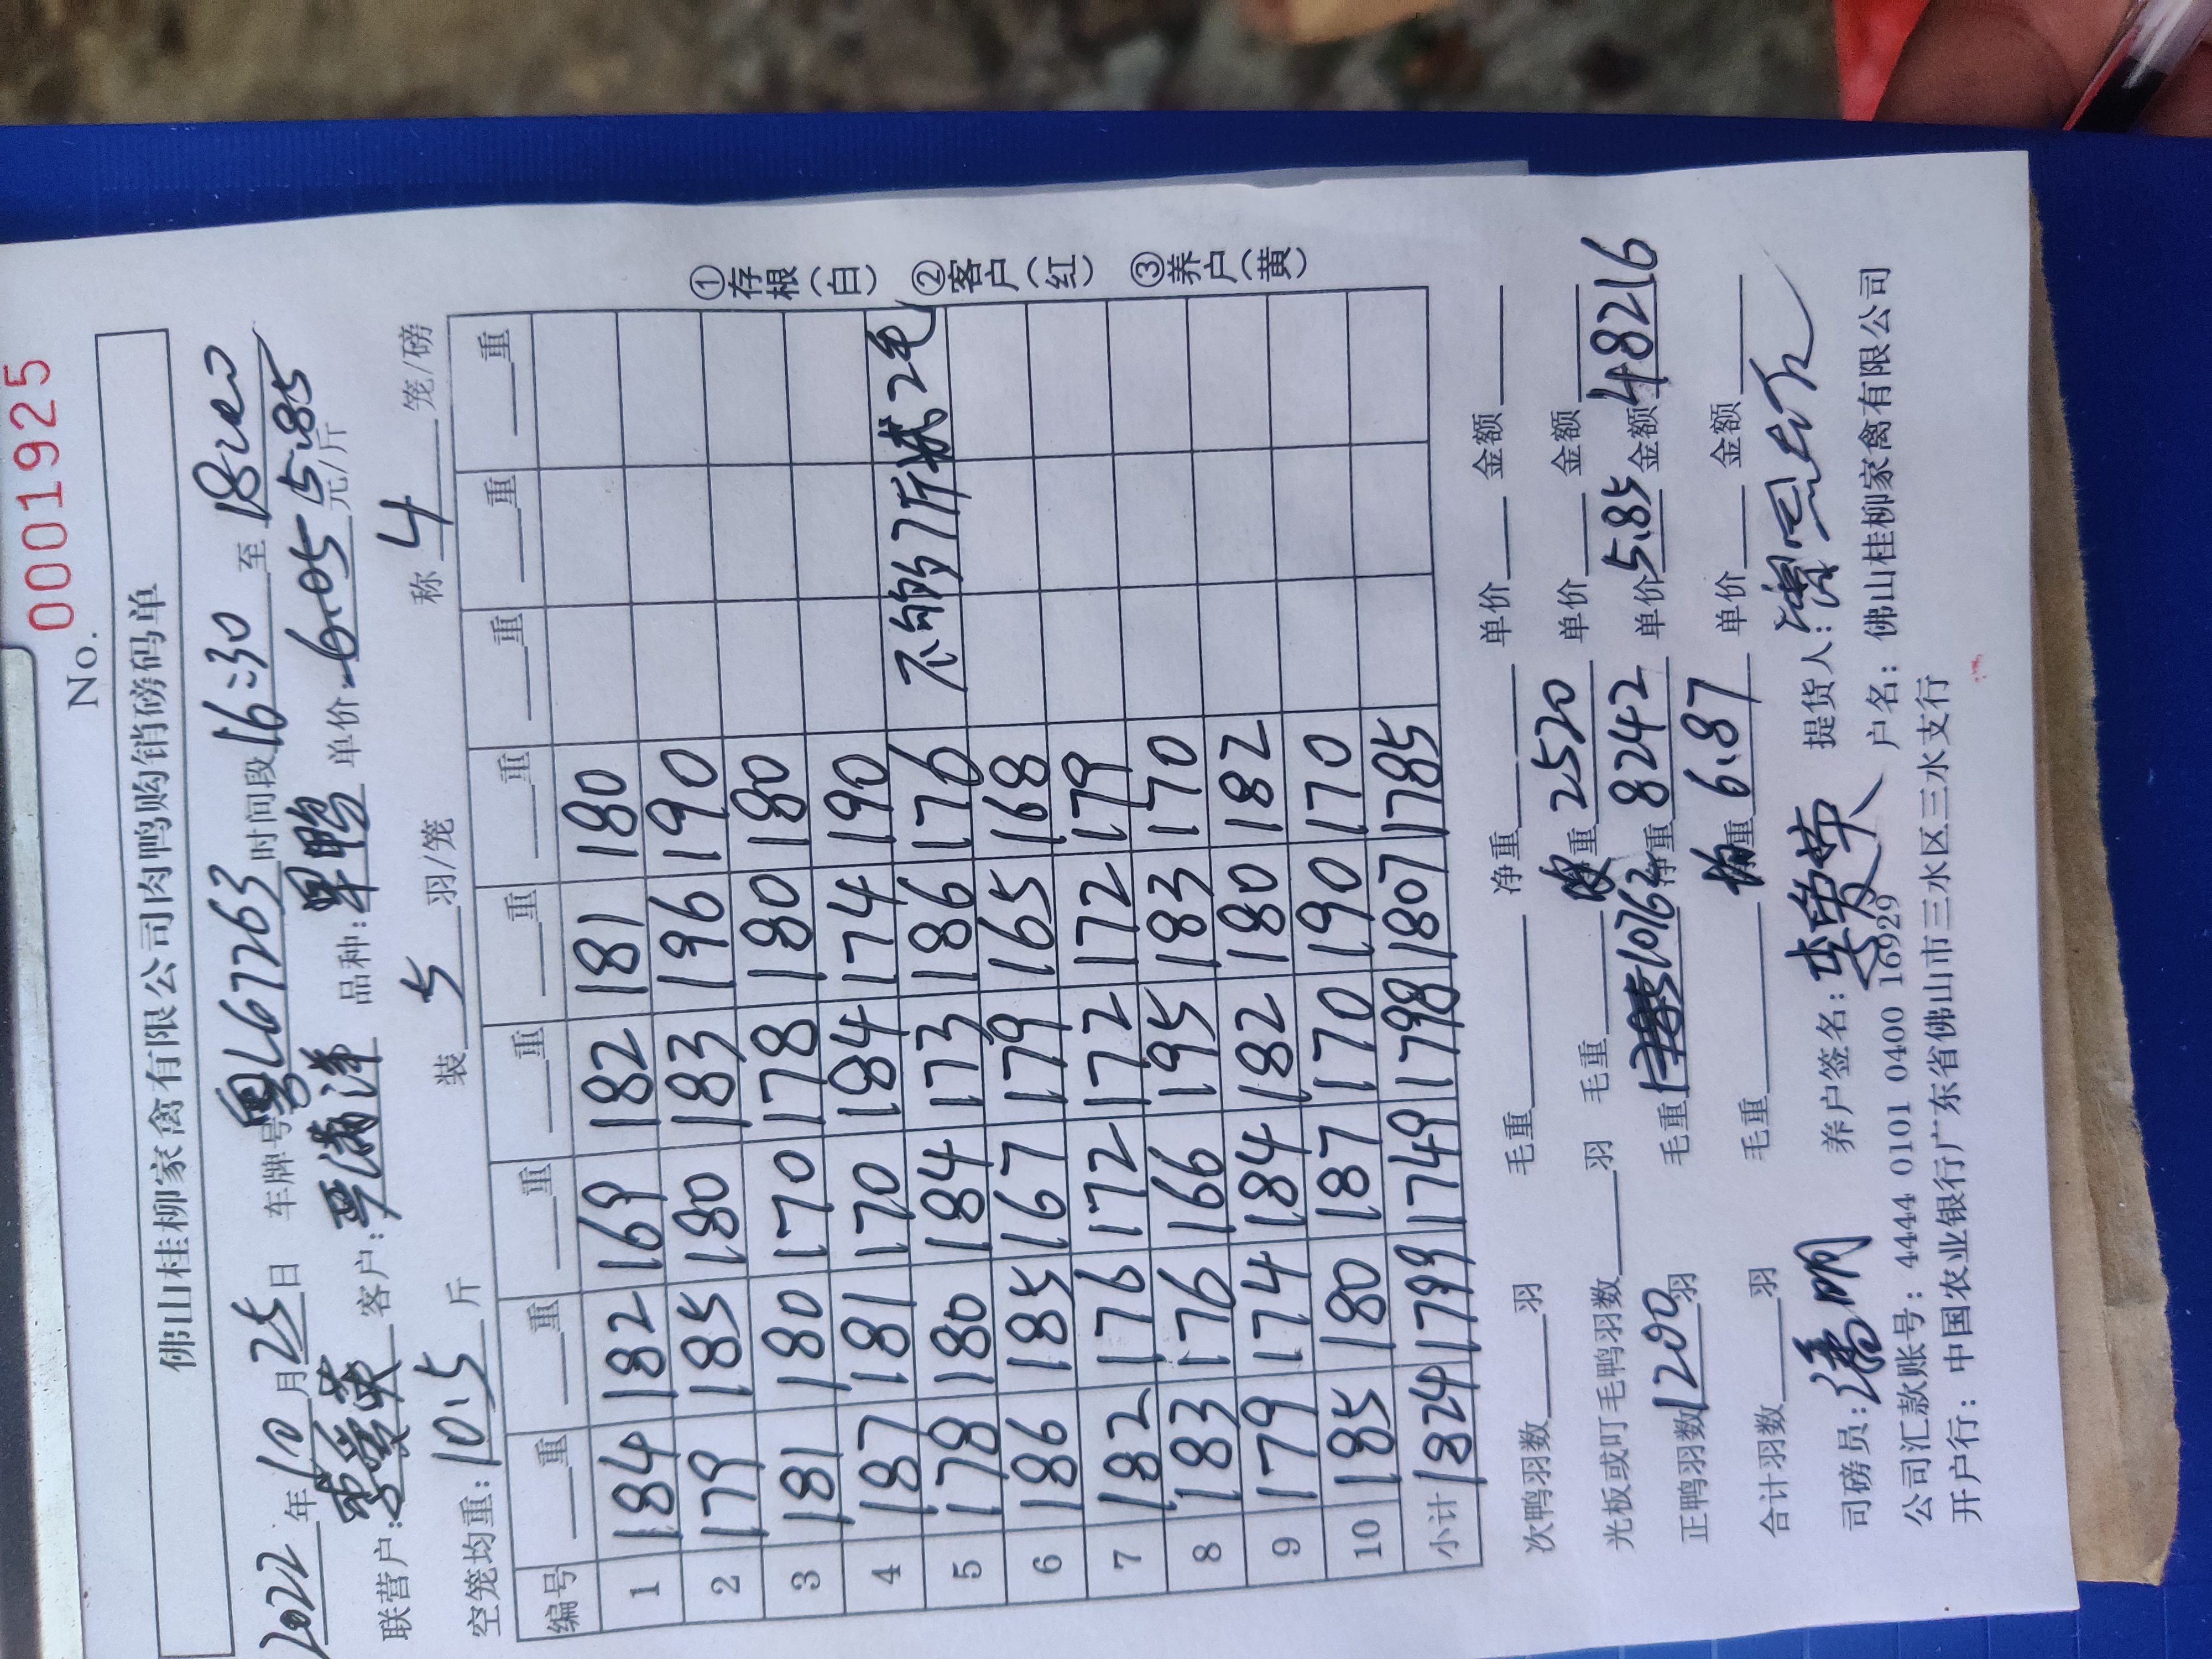 No. 0001925
佛山桂柳家禽有限公司肉鸭购销磅码单
2022年10月25日 车牌号粤L67263时间段16:30至18:20
联营户: 李爱英 客户: 严满洋 品种: 单价: 6.05 5.85元/斤
空笼均重: 10.5斤 装5羽/笼 称4笼/磅
编号 重 重 重 重 重 重 重 重 重
1 184 182 169 182 181 180
2 179 185 180 183 196 190
3 181 180 170 178 180 180
4 187 181 170 184 174 190
5 178 180 184 173 186 176 不够7斤减2毛
6 186 185 167 179 165 168
7 182 176 172 172 172 179
8 183 176 166 195 183 170
9 179 174 184 182 180 182
10 185 180 187 170 190 170
小计 1824 1799 1749 1798 1807 1785
①存根(白) ②客户(红) ③养户(黄)
次鸭羽数 羽 毛重 净重 单价 金额
光板或叮毛鸭羽数 羽 毛重 重2520 单价 金额
正鸭羽数1200羽 毛重 10762 净重8242 单价5.85金额48216
合计羽数 羽 毛重 均重6.87 单价 金额
司磅员: 潘明 养户签名: 提货人:
公司汇款账号: 4444 0101 0400 16929 户名: 佛山桂柳家禽有限公司
开户行: 中国农业银行广东省佛山市三水区三水支行